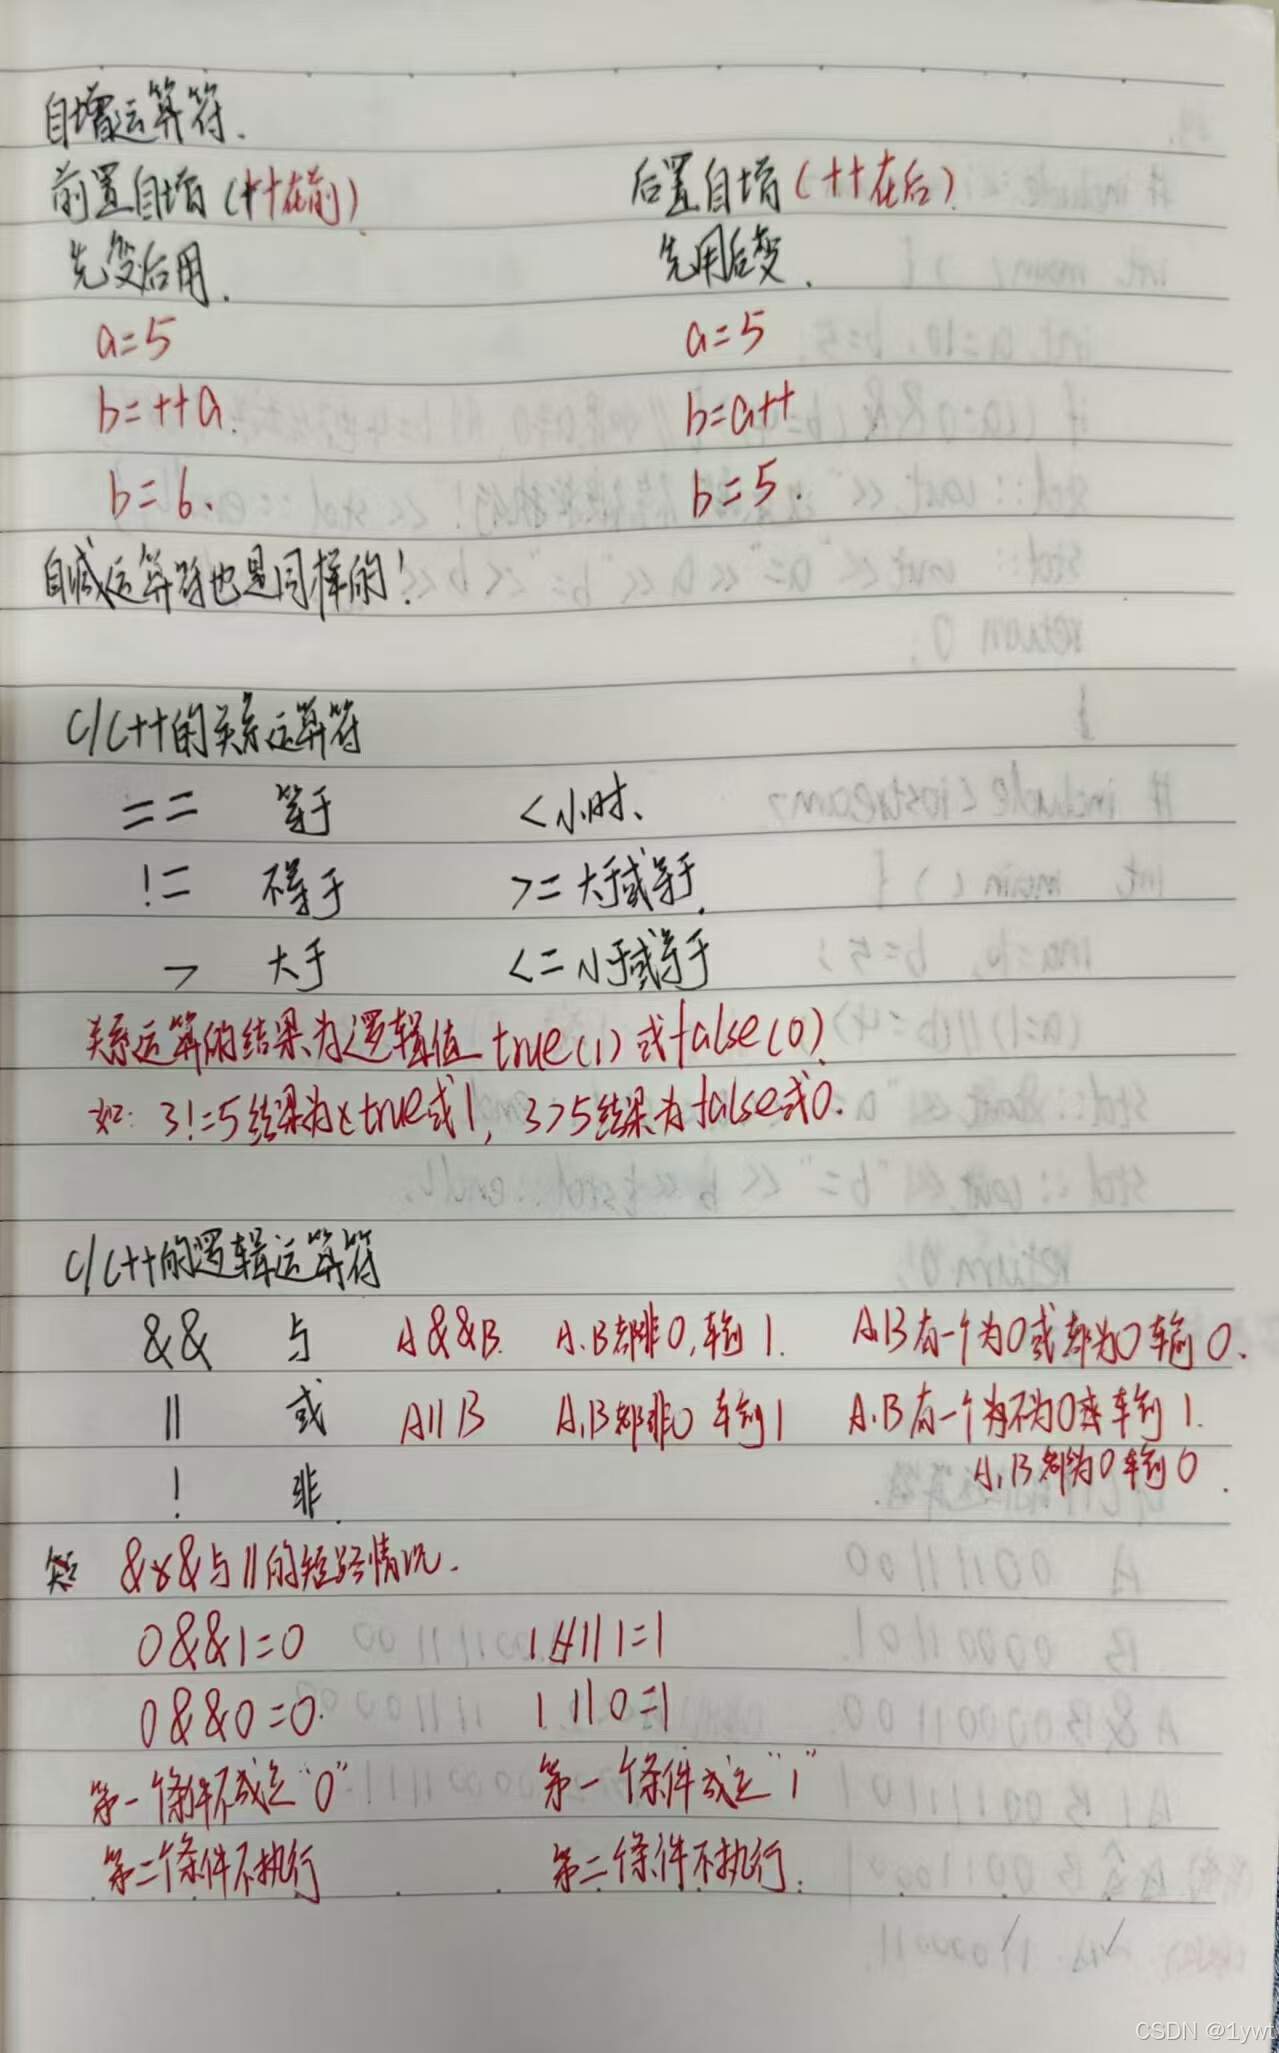 自增运算符.
前置自增(++在前) 后置自增(++在后)
先变后用. 先用后变.
a=5 a=5
b=++a. b=a++
b=6. b=5.
自减运算符也是同样的!
C/C++的关系运算符
== 等于 <小时、
!= 不等于 >=大于或等于.
> 大于 <=小于或等于
关系运算的结果为逻辑值 true(1)或false(0).
如: 3!=5结果为true或1, 3>5结果为false或0.
C/C++的逻辑运算符
&& 与 A&&B. A.B都非0,输出1. A.B有一个为0或都为0输出0.
|| 或 A||B A.B都非0 输出1 A.B有一个不为0 输出1.
! 非. A.B都为0输出0.
&&与||的短路情况.
0&&1=0 1||1=1
0&&0=0. 1||0=1
第一个条件不成立"0" 第一个条件成立"1"
第二个条件不执行 第二个条件不执行.
CSDN @1ywt